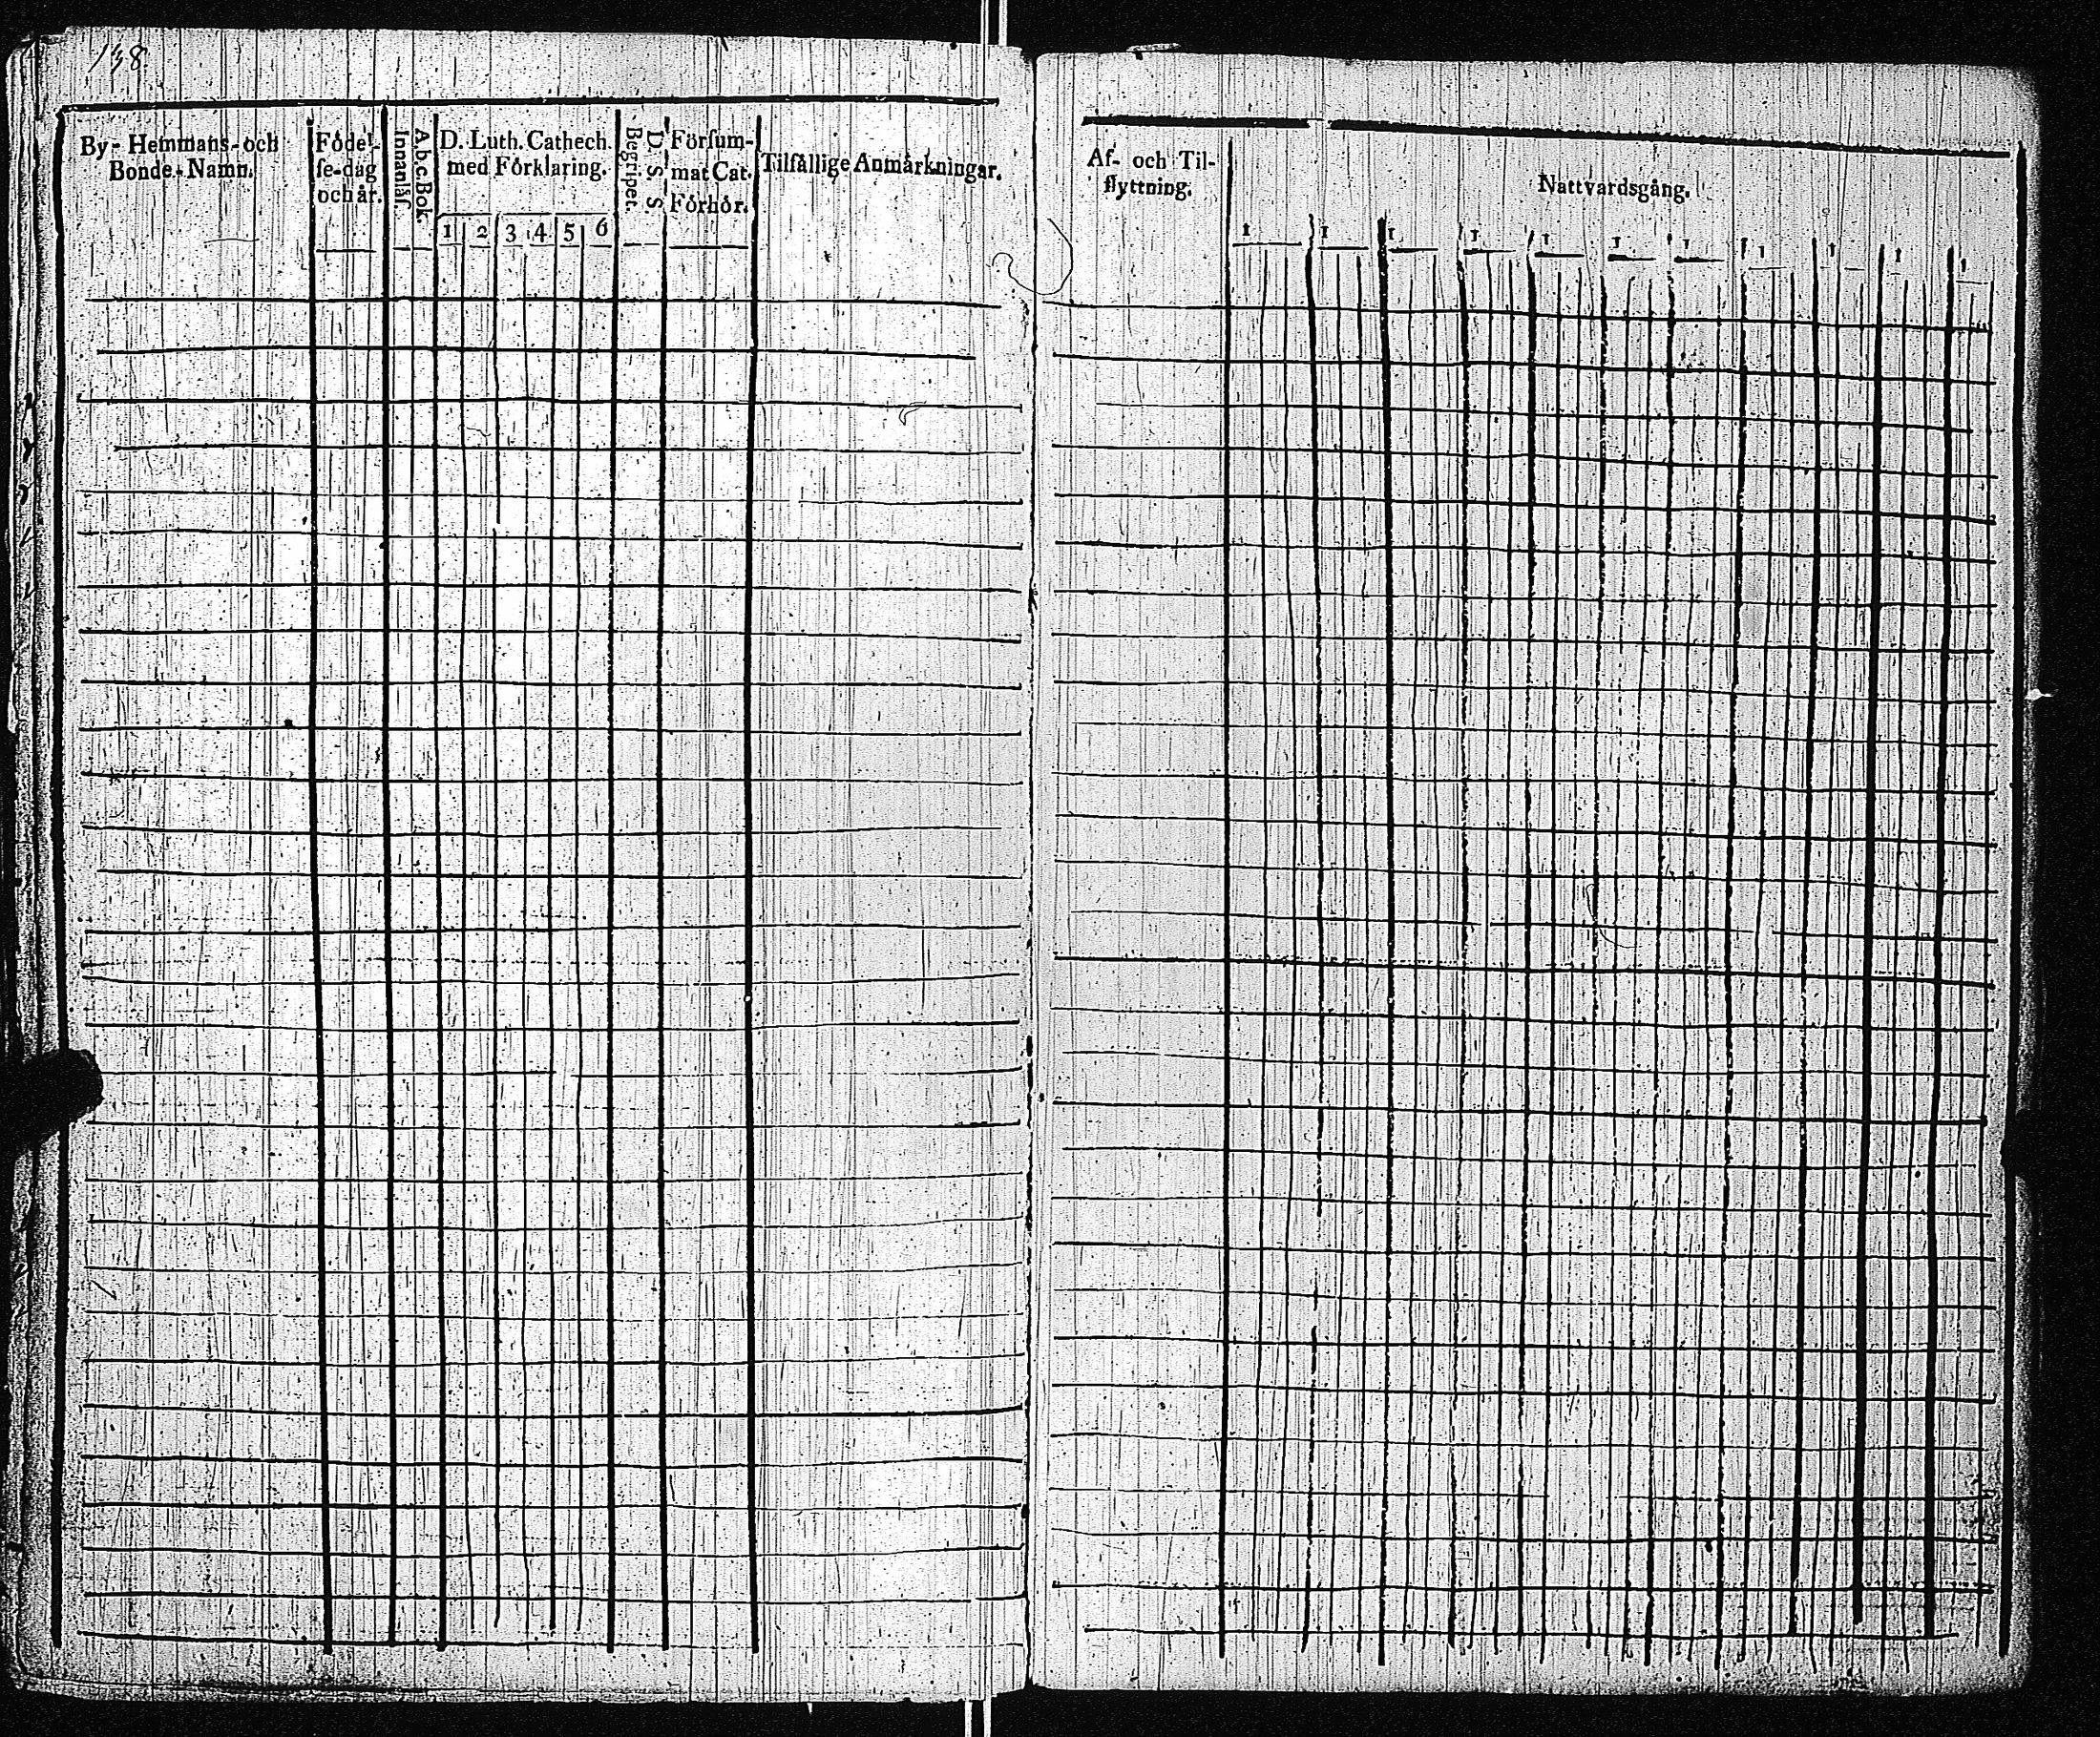 138
By- Hemmans- och
Bonde-Namn.
Födel-
ſe-dag
och år.
Innanläſ.
A.b.c.Bok.
D. Luth. Cathech.
med Förklaring.
1 2 3 4 5 6
Begripet.
D. S. S.
Förſum-
mat Cat.
Förhör.
Tilfällige Anmärkningar.
Af- och Til-
flyttning.
Nattvardsgång.
1 1 1 1 1 1 1 1 1 1 1